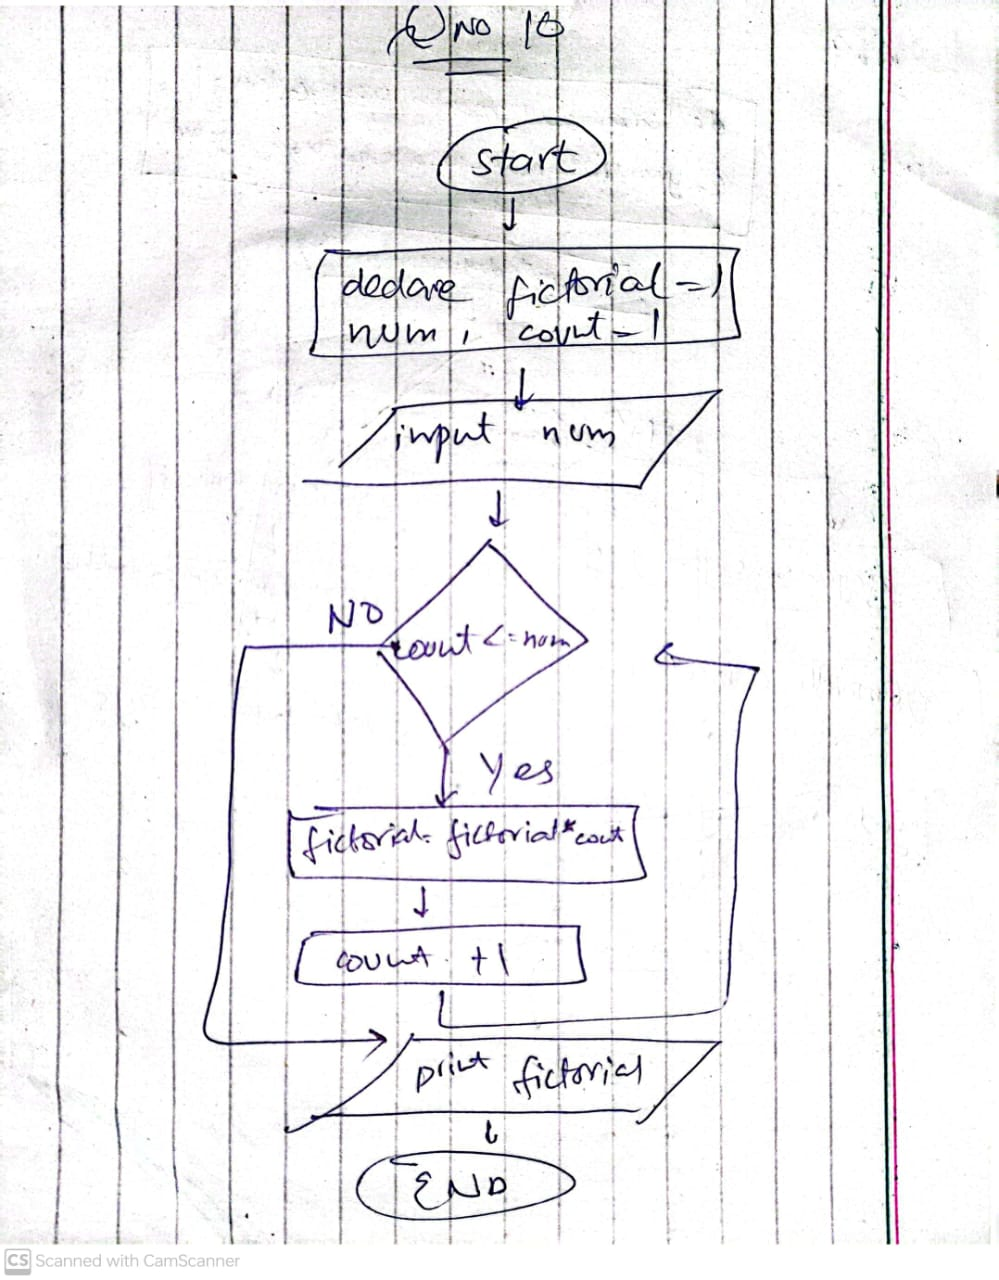 Q No 10
start
declare fictorial = 1
num, count = 1
input num
NO
count <= num
Yes
fictorial = fictorial * cout
count +1
print fictorial
END
CS Scanned with CamScanner